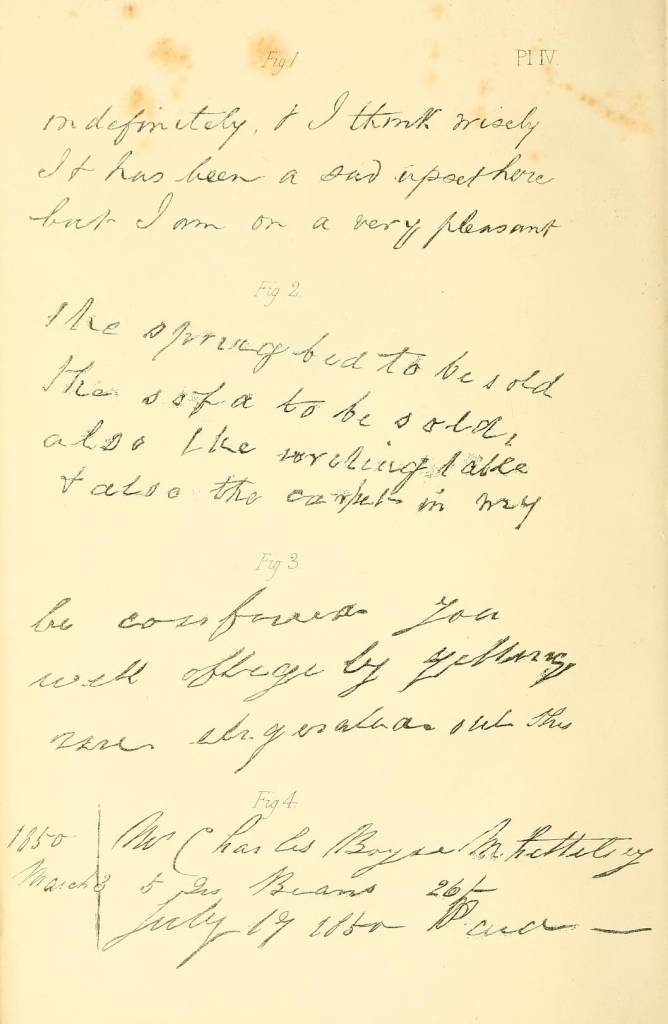 Fig 1
Pl IV.
indefinitely, & I think wisely
It has been a sad upset here
but I am on a very pleasant
Fig 2.
the spring bed to be sold
the sofa to be sold,
also the writing table
& also the carpet in my
Fig 3
be confined you
well oblige by getting
out this
Fig 4.
1850
Mr Charles Boyse
March 3 5 Qrs Beans 26/-
July 17 1850 Paid —